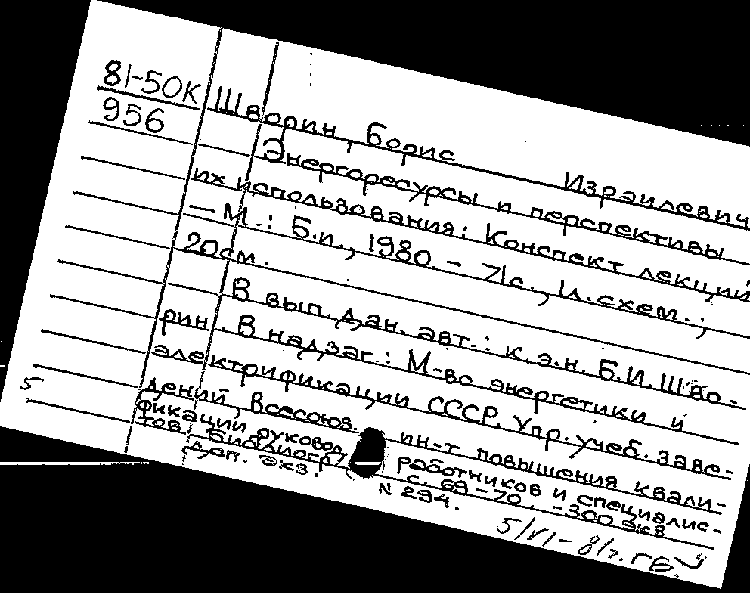 81-50К
956
Шворин, Борис Израилевич
Энергоресурсы и перспективы
их использования: Конспект лекций
— М.: Б.и., 1980 - 71с., ил.схем.;
20см.
В вып. дан. авт.: к.э.н. Б.И. Шво-
рин. В надзаг.: М-во энергетики и
электрификации СССР. Упр. учеб. заве-
дений, Всесоюз. ин-т повышения квали-
фикации руковод. работников и специалис-
тов. Библиогр. с. 69-70. -300 экз
Доп. экз. N 294.
5
5/VI-81г.